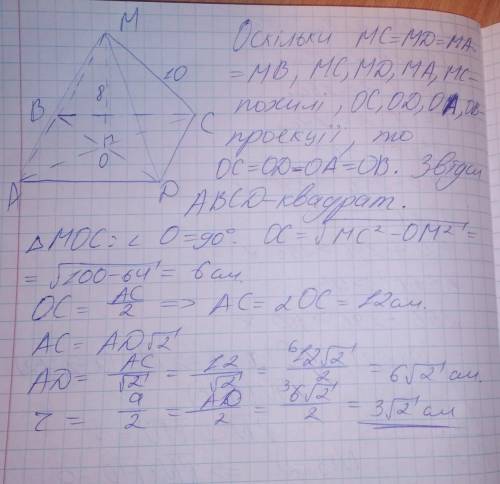 M
10
8
B
C
O
A
D
Оскільки MC=MD=MA=
=MB, MC, MD, MA, MC–
похилі, OC, OD, OA, OB–
проекції, то
OC=OD=OA=OB. Звідси
ABCD–квадрат.
△MOC: ∠O=90°. OC=√MC²–OM²=
=√100–64=6см.
OC=AC/2 => AC=2OC=12см.
AC=AD√2
AD=AC/√2=12/√2=12√2/2=6√2 см.
r=a/2=AD/2=6√2/2=3√2 см